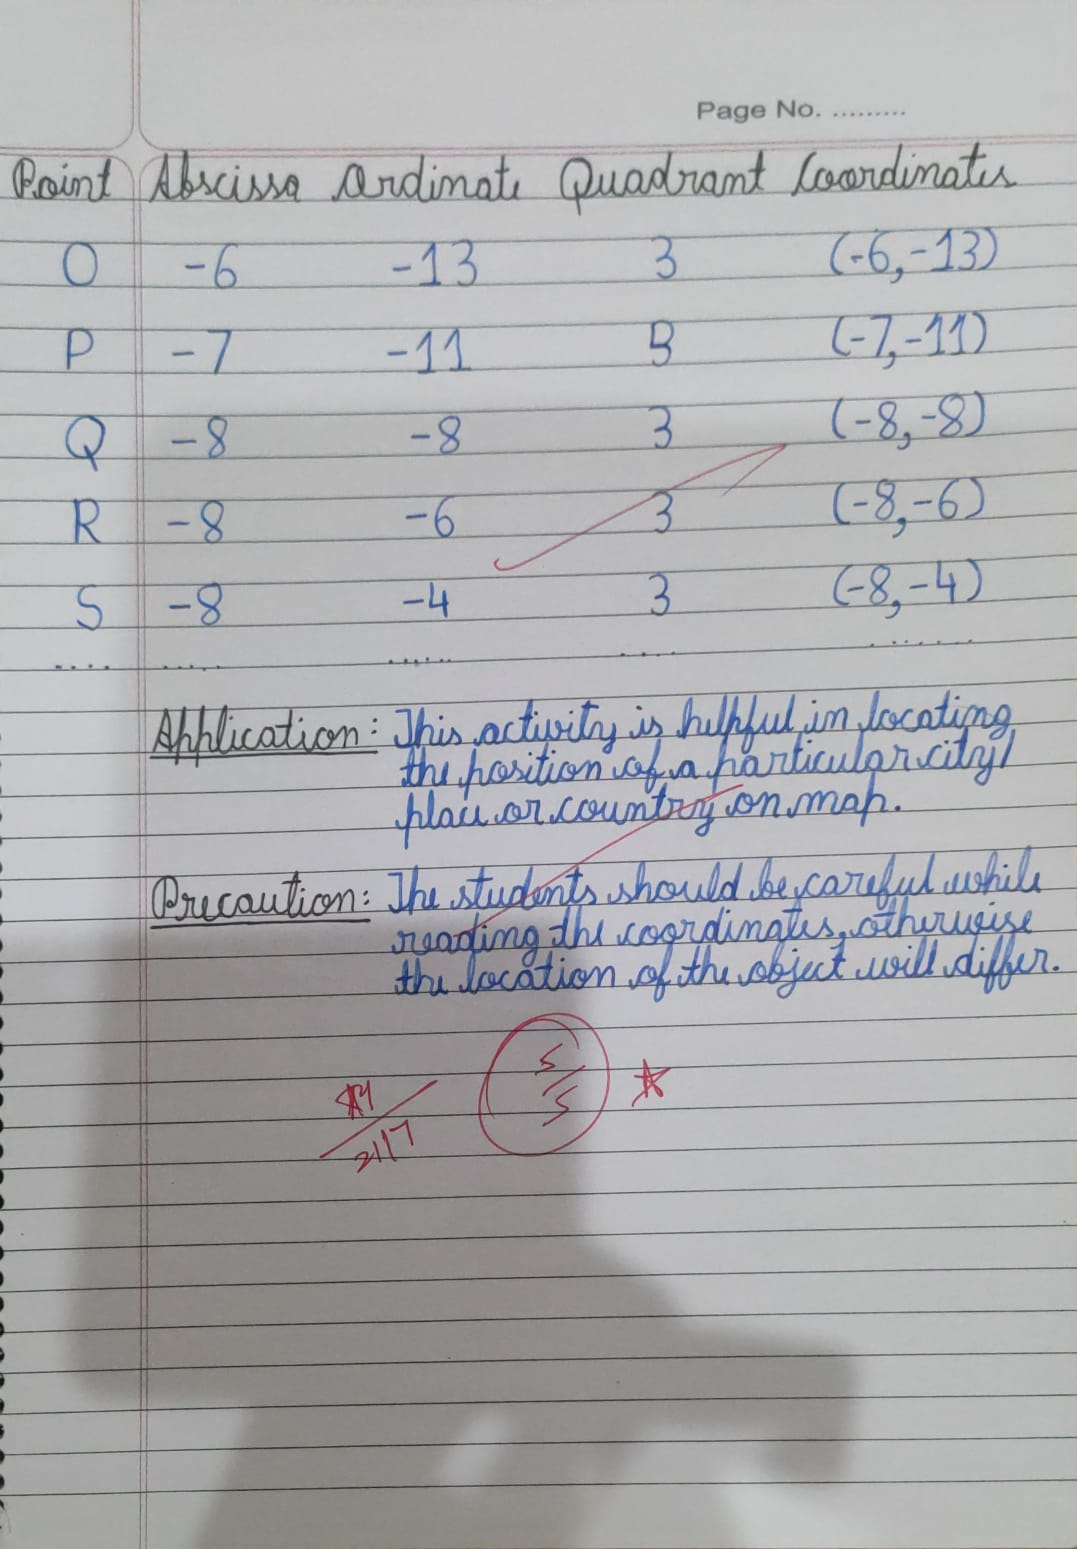 Page No. .........
Point Abscissa Ordinate Quadrant Coordinates
O -6 -13 3 (-6,-13)
P -7 -11 3 (-7,-11)
Q -8 -8 3 (-8,-8)
R -8 -6 3 (-8,-6)
S -8 -4 3 (-8,-4)
.... ..... ...... .... .......
Application: This activity is helpful in locating
the position of a particular city/
place or country on map.
Precaution: The students should be careful while
reading the coordinates, otherwise
the location of the object will differ.
5/5
21/7